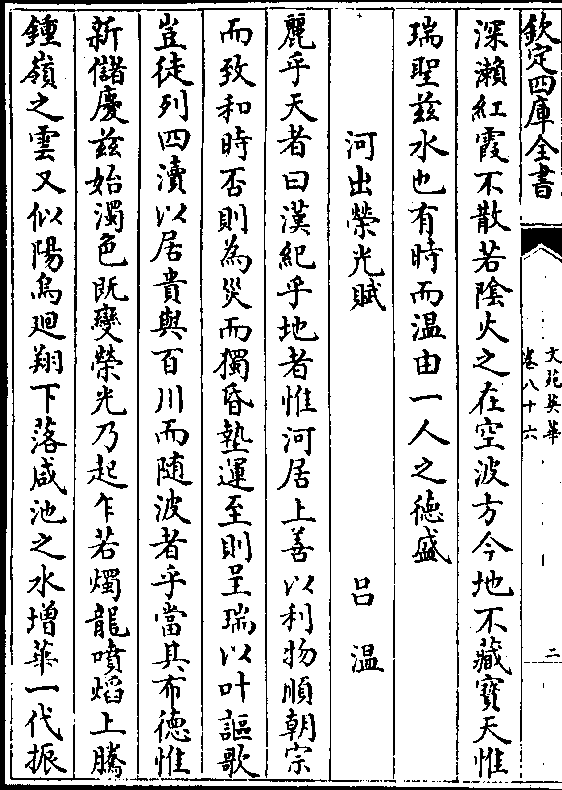 欽定四庫全書
文苑英華
卷八十六
二
深瀨紅霞不散若陰火之在空波方今地不藏寶天惟
瑞聖兹水也有時而温由一人之德盛
河出榮光賦 吕溫
麗乎天者曰漢紀乎地者惟河居上善以利物順朝宗
而致和時否則為災而獨昏墊運至則呈瑞以叶謳歌
豈徒列四瀆以居貴與百川而随波者乎當其布德惟
新儲慶兹始濁色既變榮光乃起乍若燭龍噴熖上騰
鍾嶺之雲又似陽烏廻翔下落咸池之水增華一代振